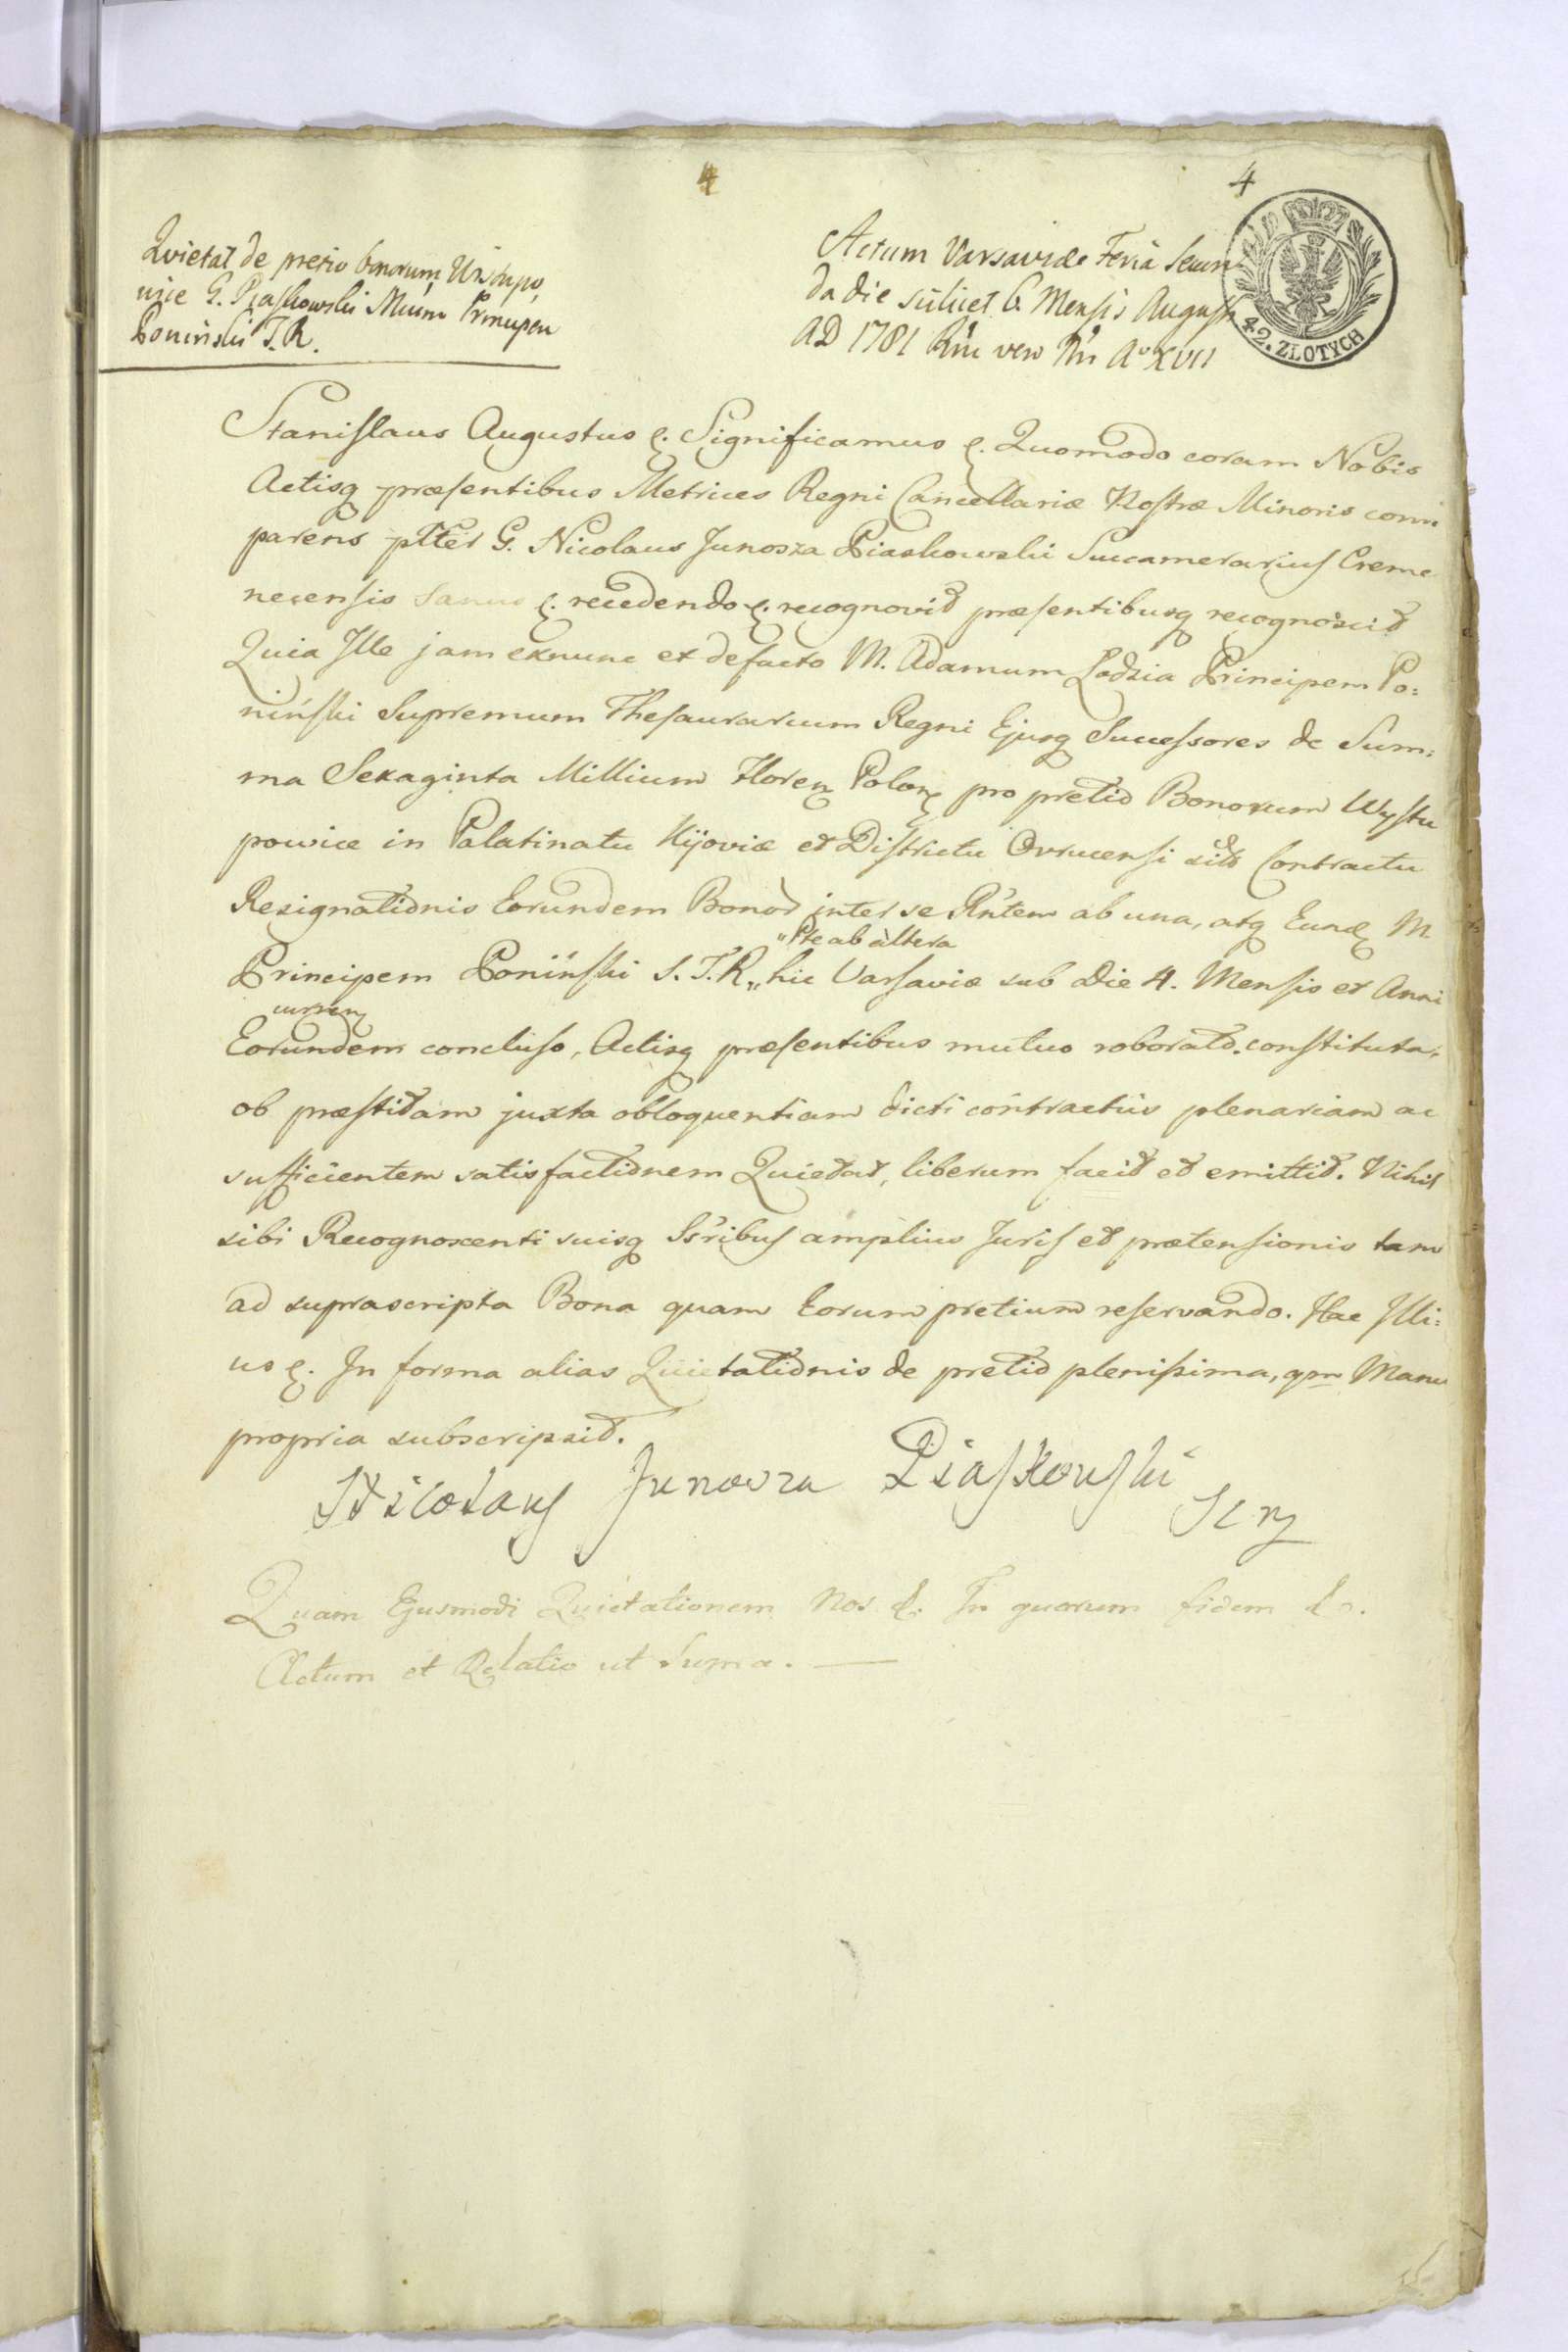 4
4
Quietat de pretio bonorum Wistupo,
wice G. Piaskowski Mcum Principem
Poniński T. R.
Actum Varsaviæ Feria Secun
da die scilicet 6. Mensis Augusti
AD 1781 Rni vero Nri Ao XVII
42. ZŁOTYCH
Stanislaus Augustus &. Significamus &. Quomodo coram Nobis
Actisq præsentibus Metrices Regni Cancellariæ Nostræ Minoris com
parens plter G. Nicolaus Junosza Piaskowski Succamerarius Creme
necensis sanus &. recedendo &. recognovit præsentibusq recognoscit
Quia Ille jam exnunc et defacto M. Adamum Lodzia Principem Po:
niński Supremum Thesaurarium Regni Ejusq Successores de Sum:
ma Sexaginta Millium Floren Polon pro pretio Bonorum Wystu
powice in Palatinatu Kijoviæ et Districtu Ovrucensi sits Contractu
Resignationis Eorundem Bonor inter se Rntem ab una, atq Eund M
"Pte ab altera
Principem Poniński S. T. R „ hic Varsaviæ sub Die 4. Mensis et Anni
curren
Eorundem concluso, Actisq præsentibus mutuo roborato. constituta,
ob præstitam juxta obloquentiam dicti contractus plenariam ac
sufficientem satisfactionem Quietat, liberum facit et emittit. Nihil
sibi Recognoscenti suisq Ssribus amplius Juris et prætensionis tam
ad suprascripta Bona quam Eorum pretium reservando. Hac Illi:
us &. In forma alias Quietationis de pretio plenissima, qm Manu
propria subscripsit.
Nicolaus Junosza Piaskowski
Quam Ejusmodi Quietationem Nos &. In quorum fidem &.
Actum et Relatio ut Supra.